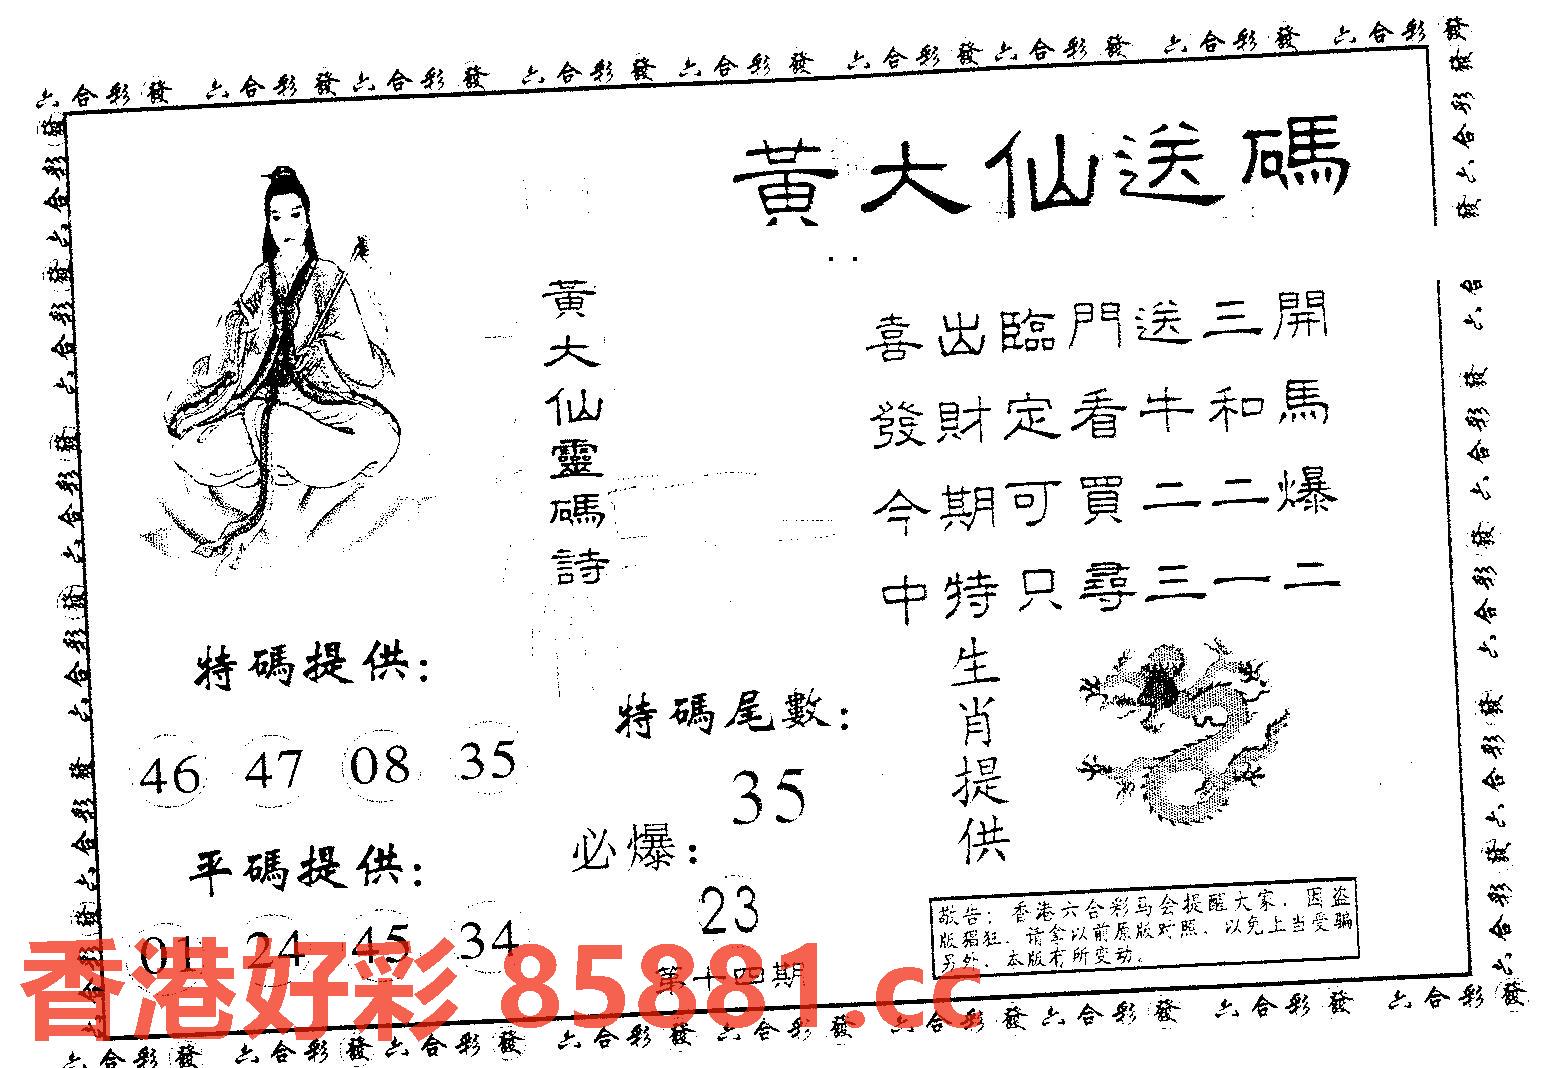 六合彩發 六合彩發六合彩發 六合彩發 六合彩發 六合彩發六合彩發 六合彩發 六合彩發
黃大仙送碼
黃大仙靈碼詩
喜出臨門送三開
發財定看牛和馬
今期可買二二爆
中特只尋三一二
特碼提供:
46 47 08 35
平碼提供:
01 24 45 34
特碼尾數:
35
必爆:
23
第十四期
生肖提供
敬告:香港六合彩马会提醒大家.因盗
版猖狂.请拿以前原版对照.以免上当受骗
另外.本版有所变动.
香港好彩 85881.cc
六合彩發 六合彩發六合彩發 六合彩發 六合彩發 六合彩發六合彩發 六合彩發 六合彩發